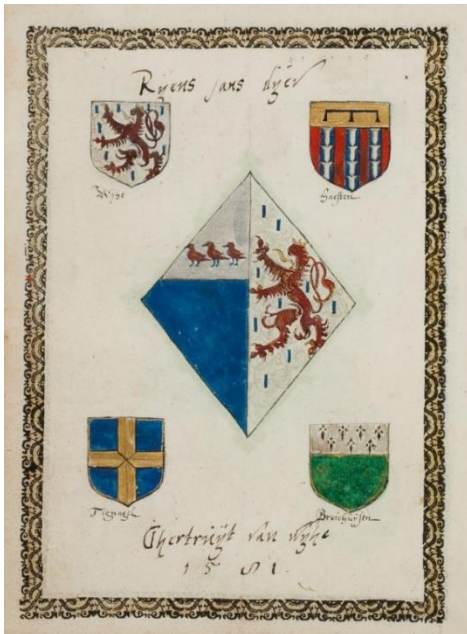 Ryens sans dyer
Wyhe
Haeften
Tignagh
Broichuysen
Ghertruyt van wyhe
1581.